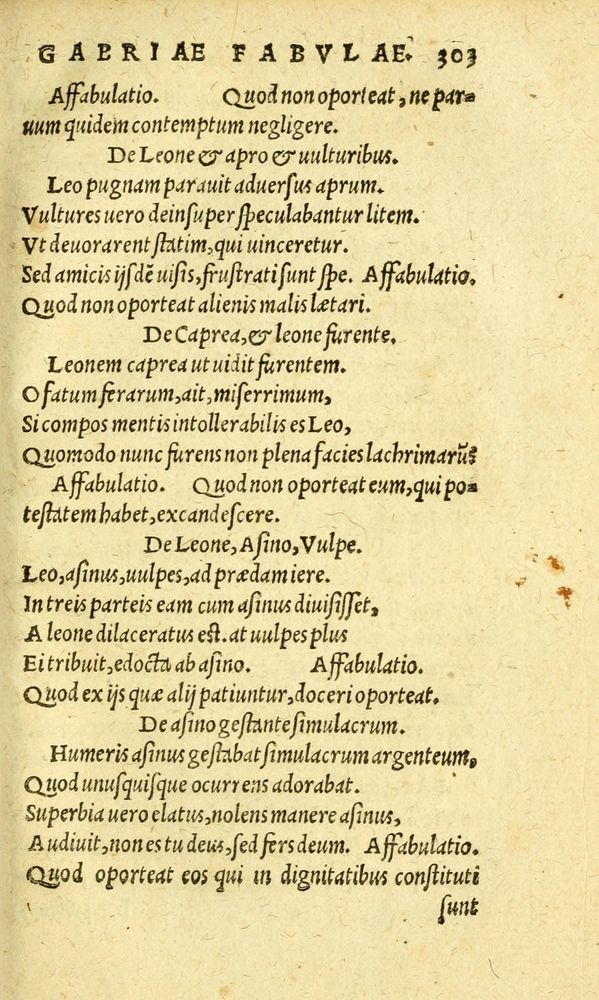 GABRIAE FABVLAE. 303
Affabulatio. Quod non oporteat, ne par-
uum quidem contemptum negligere.
De Leone & apro & uulturibus.
Leo pugnam parauit aduersus aprum.
Vultures uero deinsuper speculabantur litem.
Vt deuorarent statim, qui uinceretur.
Sed amicis ijsdē uisis, frustrati sunt spe. Affabulatio.
Quod non oporteat alienis malis lætari.
De Caprea, & leone furente.
Leonem caprea ut uidit furentem.
O fatum ferarum, ait, miserrimum,
Si compos mentis intollerabilis es Leo,
Quomodo nunc furens non plena facies lachrimarū?
Affabulatio. Quod non oporteat eum, qui po-
testatem habet, excandescere.
De Leone, Asino, Vulpe.
Leo, asinus, uulpes, ad prædam iere.
In treis parteis eam cum asinus diuisisset,
A leone dilaceratus est. at uulpes plus
Ei tribuit, edocta ab asino. Affabulatio.
Quod ex ijs quæ alij patiuntur, doceri oporteat.
De asino gestante simulacrum.
Humeris asinus gestabat simulacrum argenteum,
Quod unusquisque ocurrens adorabat.
Superbia uero elatus, nolens manere asinus,
Audiuit, non es tu deus, sed fers deum. Affabulatio.
Quod oporteat eos qui in dignitatibus constituti
sunt